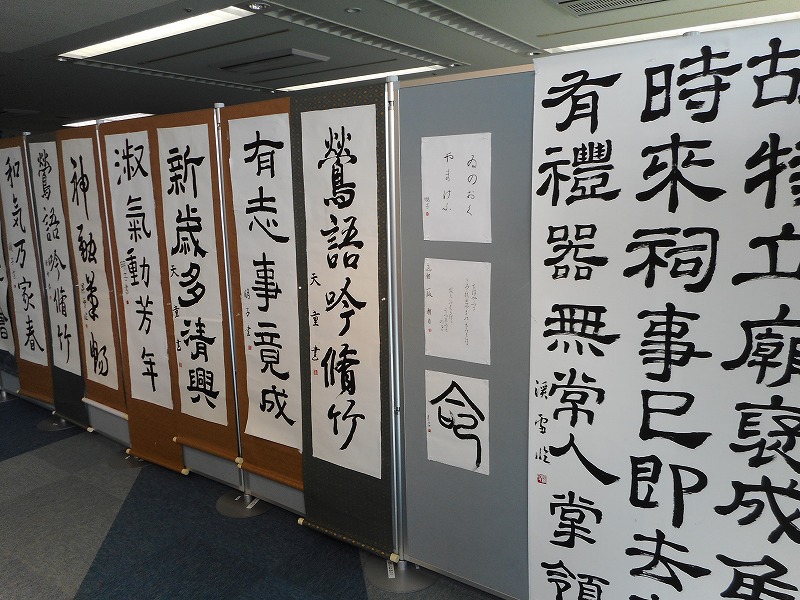 故特立廟褒成
時來祠事已即去
有禮器無常人掌領
渓雪臨
ゐのおく
やまけふ
命
鶯語吟脩竹
天童書
有志事竟成
明子書
新歳多清興
天童書
淑氣動芳年
神融筆暢
鶯語吟脩竹
和気万家春